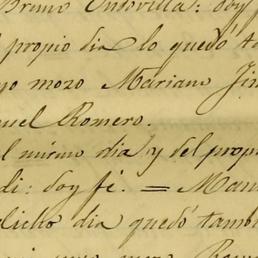 Bruno Ontovilla: doy f
l propio dia lo quedó ta
yo mozo Mariano Jim
uel Romero.
l mismo dia y del prop
di: doy fé. = Manu
dicho dia quedó tambi